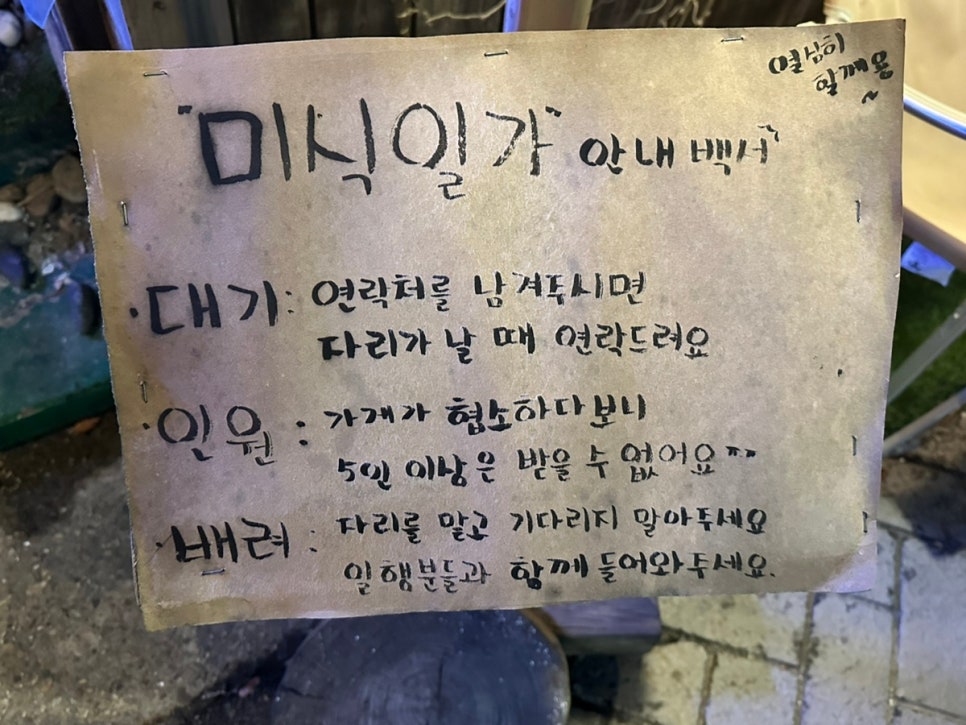 열심히
할께용~
"미식일가" 안내백서"
·대기: 연락처를 남겨주시면
자리가 날 때 연락드려요
·인원: 가게가 협소하다보니
5인 이상은 받을 수 없어요ㅠㅠ
·배려: 자리를 맡고 기다리지 말아주세요
일행분들과 함께 들어와주세요.